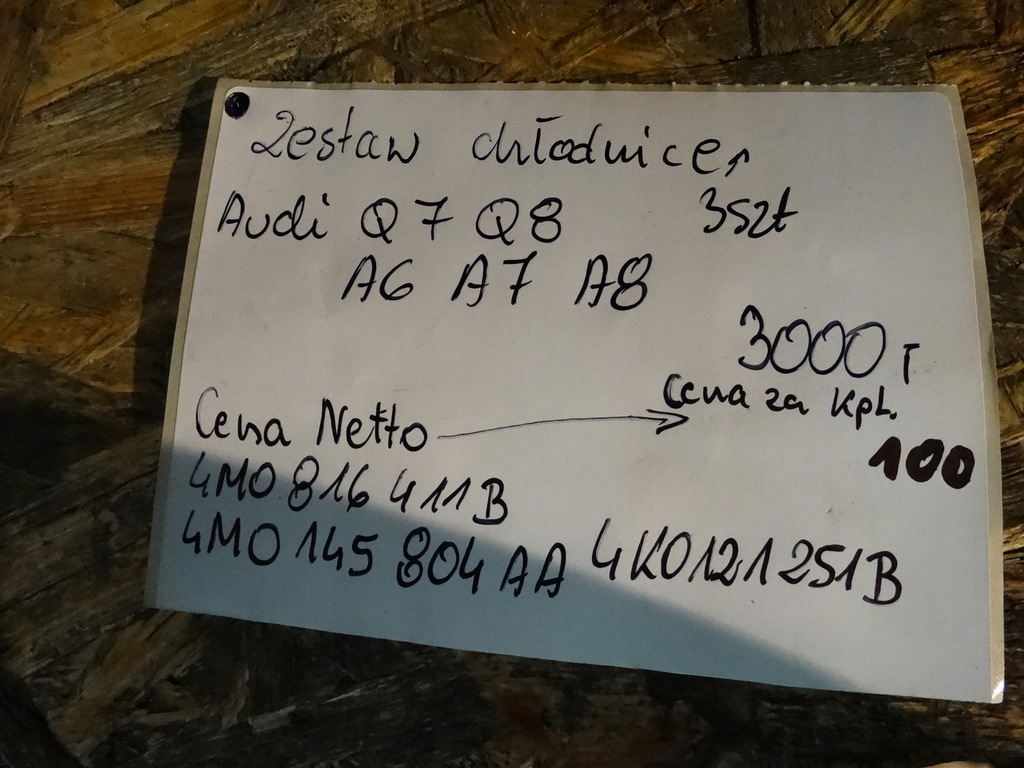 Zestaw chłodnice,
Audi Q7 Q8 3szt
A6 A7 A8
3000
Cena Netto → Cena za Kpl.
100
4M0 816 411B
4M0 145 804 AA 4K0121251B